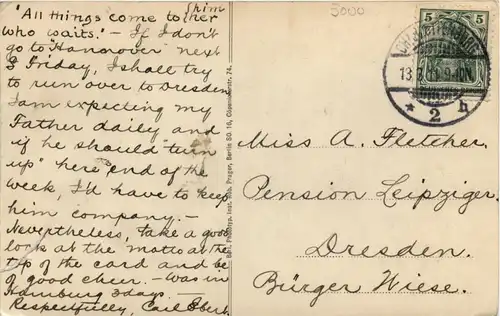 him
'All things come to her
who waits.' - If I don't
go to "Hannover" next
Friday, I shall try
to run over to Dresden
I am expecting my
Father daily and
if he should "turn
up" here, end of the
week, I'll have to keep
him company. -
Nevertheless, take a good
look at the motto at the
top of the card and be
of good cheer. - Was in
Hamburg 3 days. -
Respectfully, Carl Ebert.
5000
5 5
13.6.11.9-10N.
* 2 h
Miss A. Fletcher.
Pension Leipziger.
Dresden.
Bürger Wiese.
Prager, Berlin SO 16, Cöpenickerstr. 74.